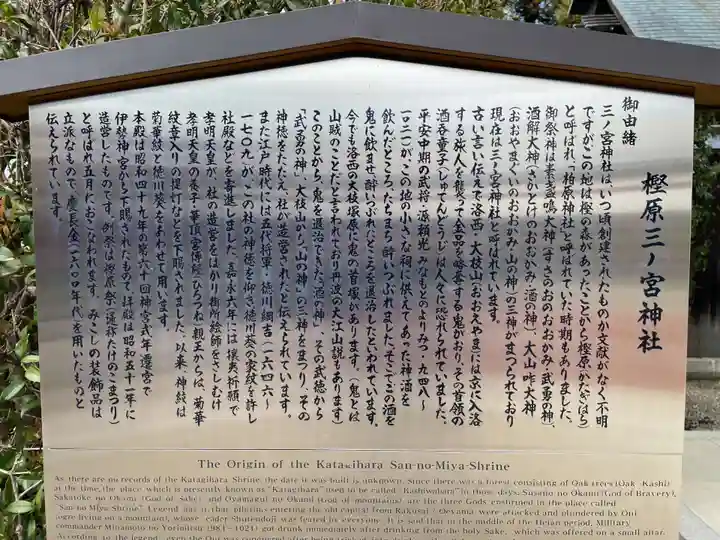 樫原三ノ宮神社
御由緒
三ノ宮神社は、いつ頃創建されたものか文献がなく不明
ですがこの地は樫の森があったことから樫原(かたぎはら)
と呼ばれ、「柏原神社」と呼ばれていた時期もありました。
御祭神は素戔嗚大神(すさのおのおおかみ・武勇の神)、
酒解大神(さかとけのおおかみ・酒の神)、大山咋大神
(おおやまくいのおおかみ・山の神)の三神がまつられており
現在は三ノ宮神社と呼ばれています。
古い言い伝えで洛西・大枝山(おおえやま)には京に入洛
する旅人を襲って金品を略奪する鬼がおり、その首領の
酒呑童子(しゅてんどうじ)は人々に恐れられていました。
平安中期の武将・源頼光(みなもとのよりみつ・九四八〜
一〇二一)が、この地の小さな祠に供えてあった神酒を
飲んだところ、たちまち酔いつぶれました。そこでこの酒を
鬼に飲ませ、酔いつぶれたところを退治したといわれています。
今でも洛西の大枝塚原に鬼の首塚があります。(鬼とは
山賊のことだと言われており丹波の大江山説もあります)
このことから、鬼を退治できた「酒の神」、その武徳から
「武勇の神」、大枝山から「山の神」の三神をまつり、その
神徳をたたえ、社が造営されたと伝えられています。
また江戸時代には五代将軍・徳川綱吉(一六四六〜
一七〇九)が、この社の神徳を仰ぎ徳川葵の家紋を許し
社殿などを寄進しました。嘉永六年には攘夷祈願で
孝明天皇が、社の造営をはかり御所絵師をさしむけ
孝明天皇の養子・華頂宮博経(ひろつね)親王からは、菊華
紋章入りの提灯などを下賜されました。以来、神紋は
菊華紋と徳川葵をあわせて用います。
本殿は昭和四十九年の第六十回神宮式年遷宮で
伊勢神宮から下賜されたもので、拝殿は昭和五十一年に
造営したものです。例祭は樫原祭(還幸祭)
と呼ばれ五月におこなわれます。みこしの装飾品は
立派なもので、慶長金(一六〇〇年代)を用いたものと
伝えられています。
The Origin of the Katagihara San-no-Miya-Shrine
As there are no records of the Katagihara Shrine, the date it was built is unknown. Since there was a forest consisting of Oak trees (Oak -Kashi)
at the time, the place which is presently known as "Katagihara" used to be called "Kashiwabara" in those days. Susano no Okami (God of Bravery),
Sakatoke no Okami (God of Sake) and Oyamagui no Okami (God of mountains) are the three Gods enshrined in the place called
"San-no Miya Shrine". Legend has it that pilgrims entering the old capital from Rakusai - Oeyama were attacked and plundered by Oni
(ogre) living on a mountain, whose leader Shutendoji was feared by everyone. It is said that in the middle of the Heian period, Military
commander Minamoto no Yorimitsu (981-1021) got drunk immediately after drinking from the holy Sake, which was offered on a small altar.